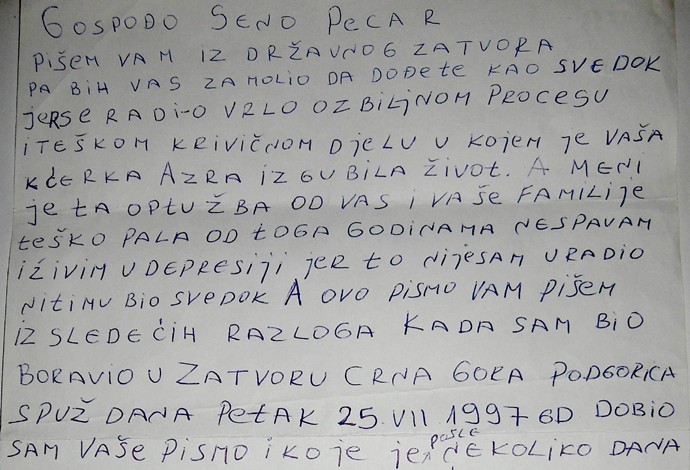 GOSPODO SENO PECAR
PIŠEM VAM IZ DRŽAVNOG ZATVORA
PA BIH VAS ZAMOLIO DA DOĐETE KAO SVEDOK
JERSE RADI-O VRLO OZBILJNOM PROCESU
ITEŠKOM KRIVIČNOM DJELU U KOJEM JE VAŠA
KĆERKA AZRA IZGUBILA ŽIVOT. A MENI
JE TA OPTUŽBA OD VAS I VAŠE FAMILIJE
TEŠKO PALA OD TOGA GODINAMA NESPAVAM
IŽIVIM U DEPRESIJI JER TO NIJESAM URADIO
NITIMU BIO SVEDOK A OVO PISMO VAM PIŠEM
IZ SLEDEĆIH RAZLOGA KADA SAM BIO
BORAVIO U ZATVORU CRNA GORA PODGORICA
SPUŽ DANA PETAK 25.VII 1997 GD DOBIO
SAM VAŠE PISMO IKOJE JE POSLE NEKOLIKO DANA